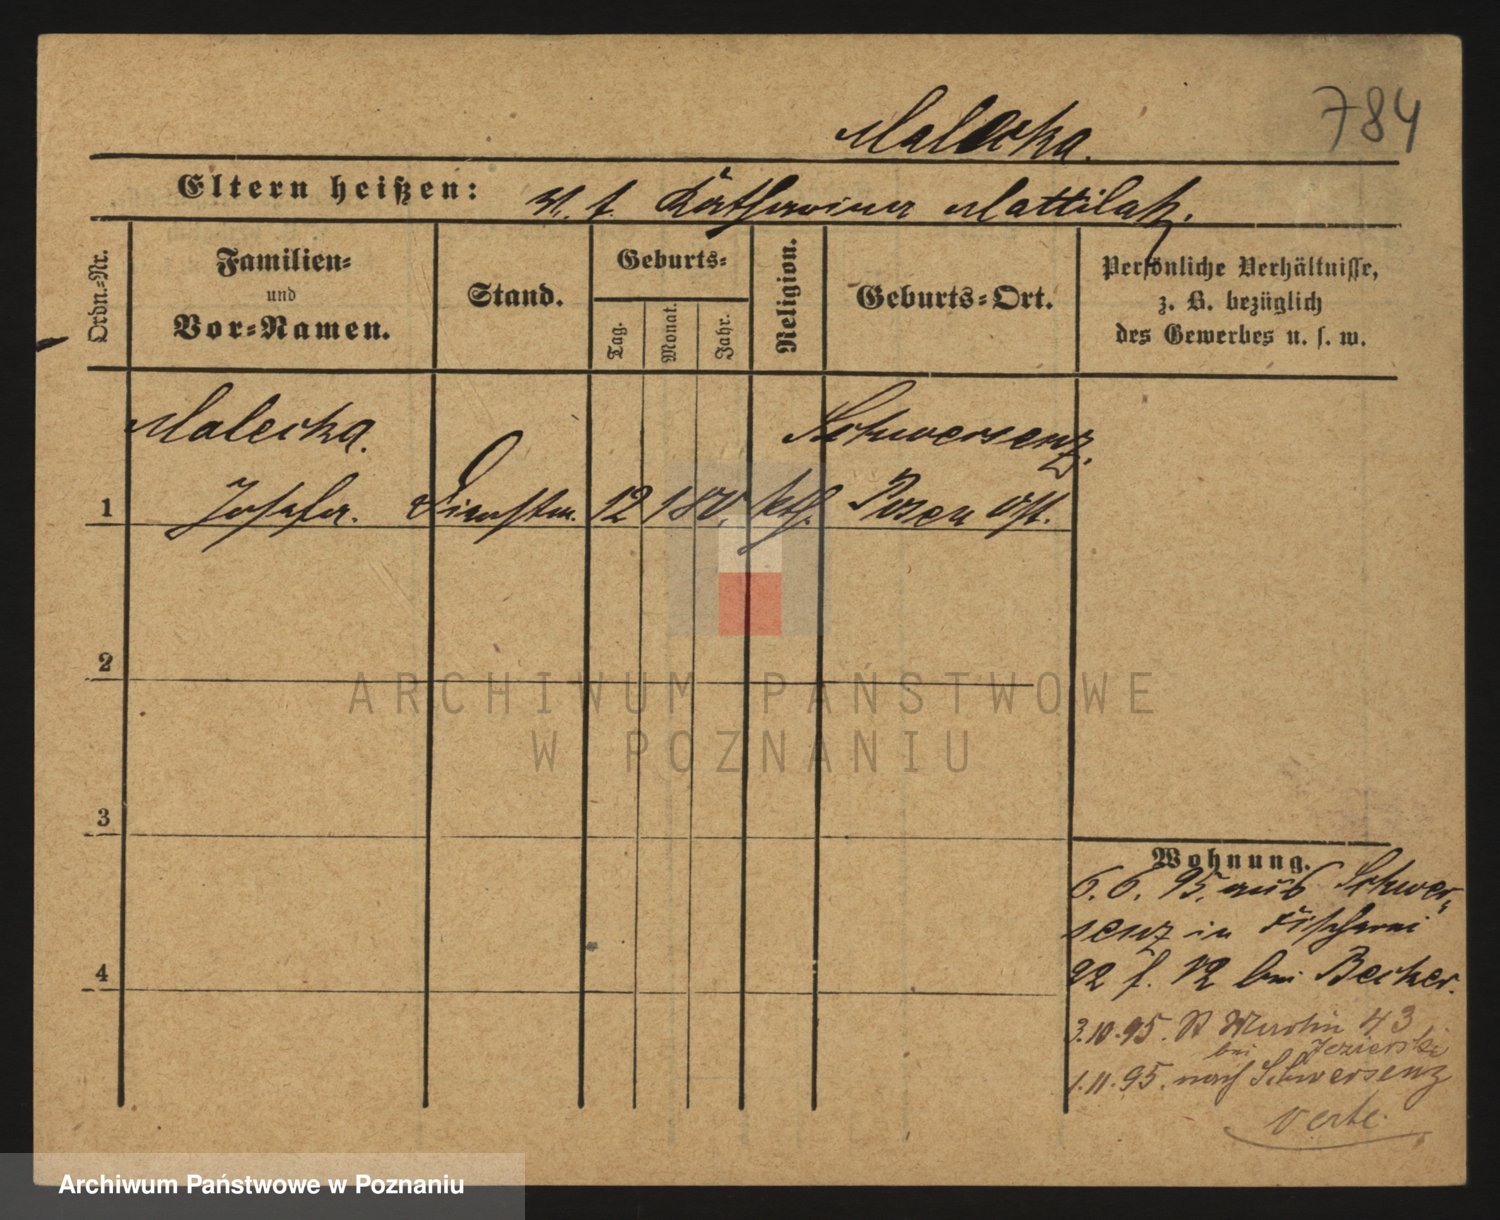 784
Malecka.
Eltern heißen:
Katharina Mattilak.
Ordn.-Nr.
Familien-
und
Vor-Namen.
Stand.
Geburts-
Tag.
Monat.
Jahr.
Religion.
Geburts-Ort.
Persönliche Verhältnisse,
z. B. bezüglich
des Gewerbes u. s. w.
Malecka.
Schwersenz.
1
Josefa. Dienstm. 12 1 80, kth. Posen Ost.
2
ARCHIWUM PAŃSTWOWE
W POZNANIU
3
4
Wohnung.
6.6.95. aus Schwer-
senz in Fischerei
22 f. 12 bei Becker.
3.10.95. St Martin 43
bei Jezierski
1.11.95. nach Schwersenz
verte.
Archiwum Państwowe w Poznaniu